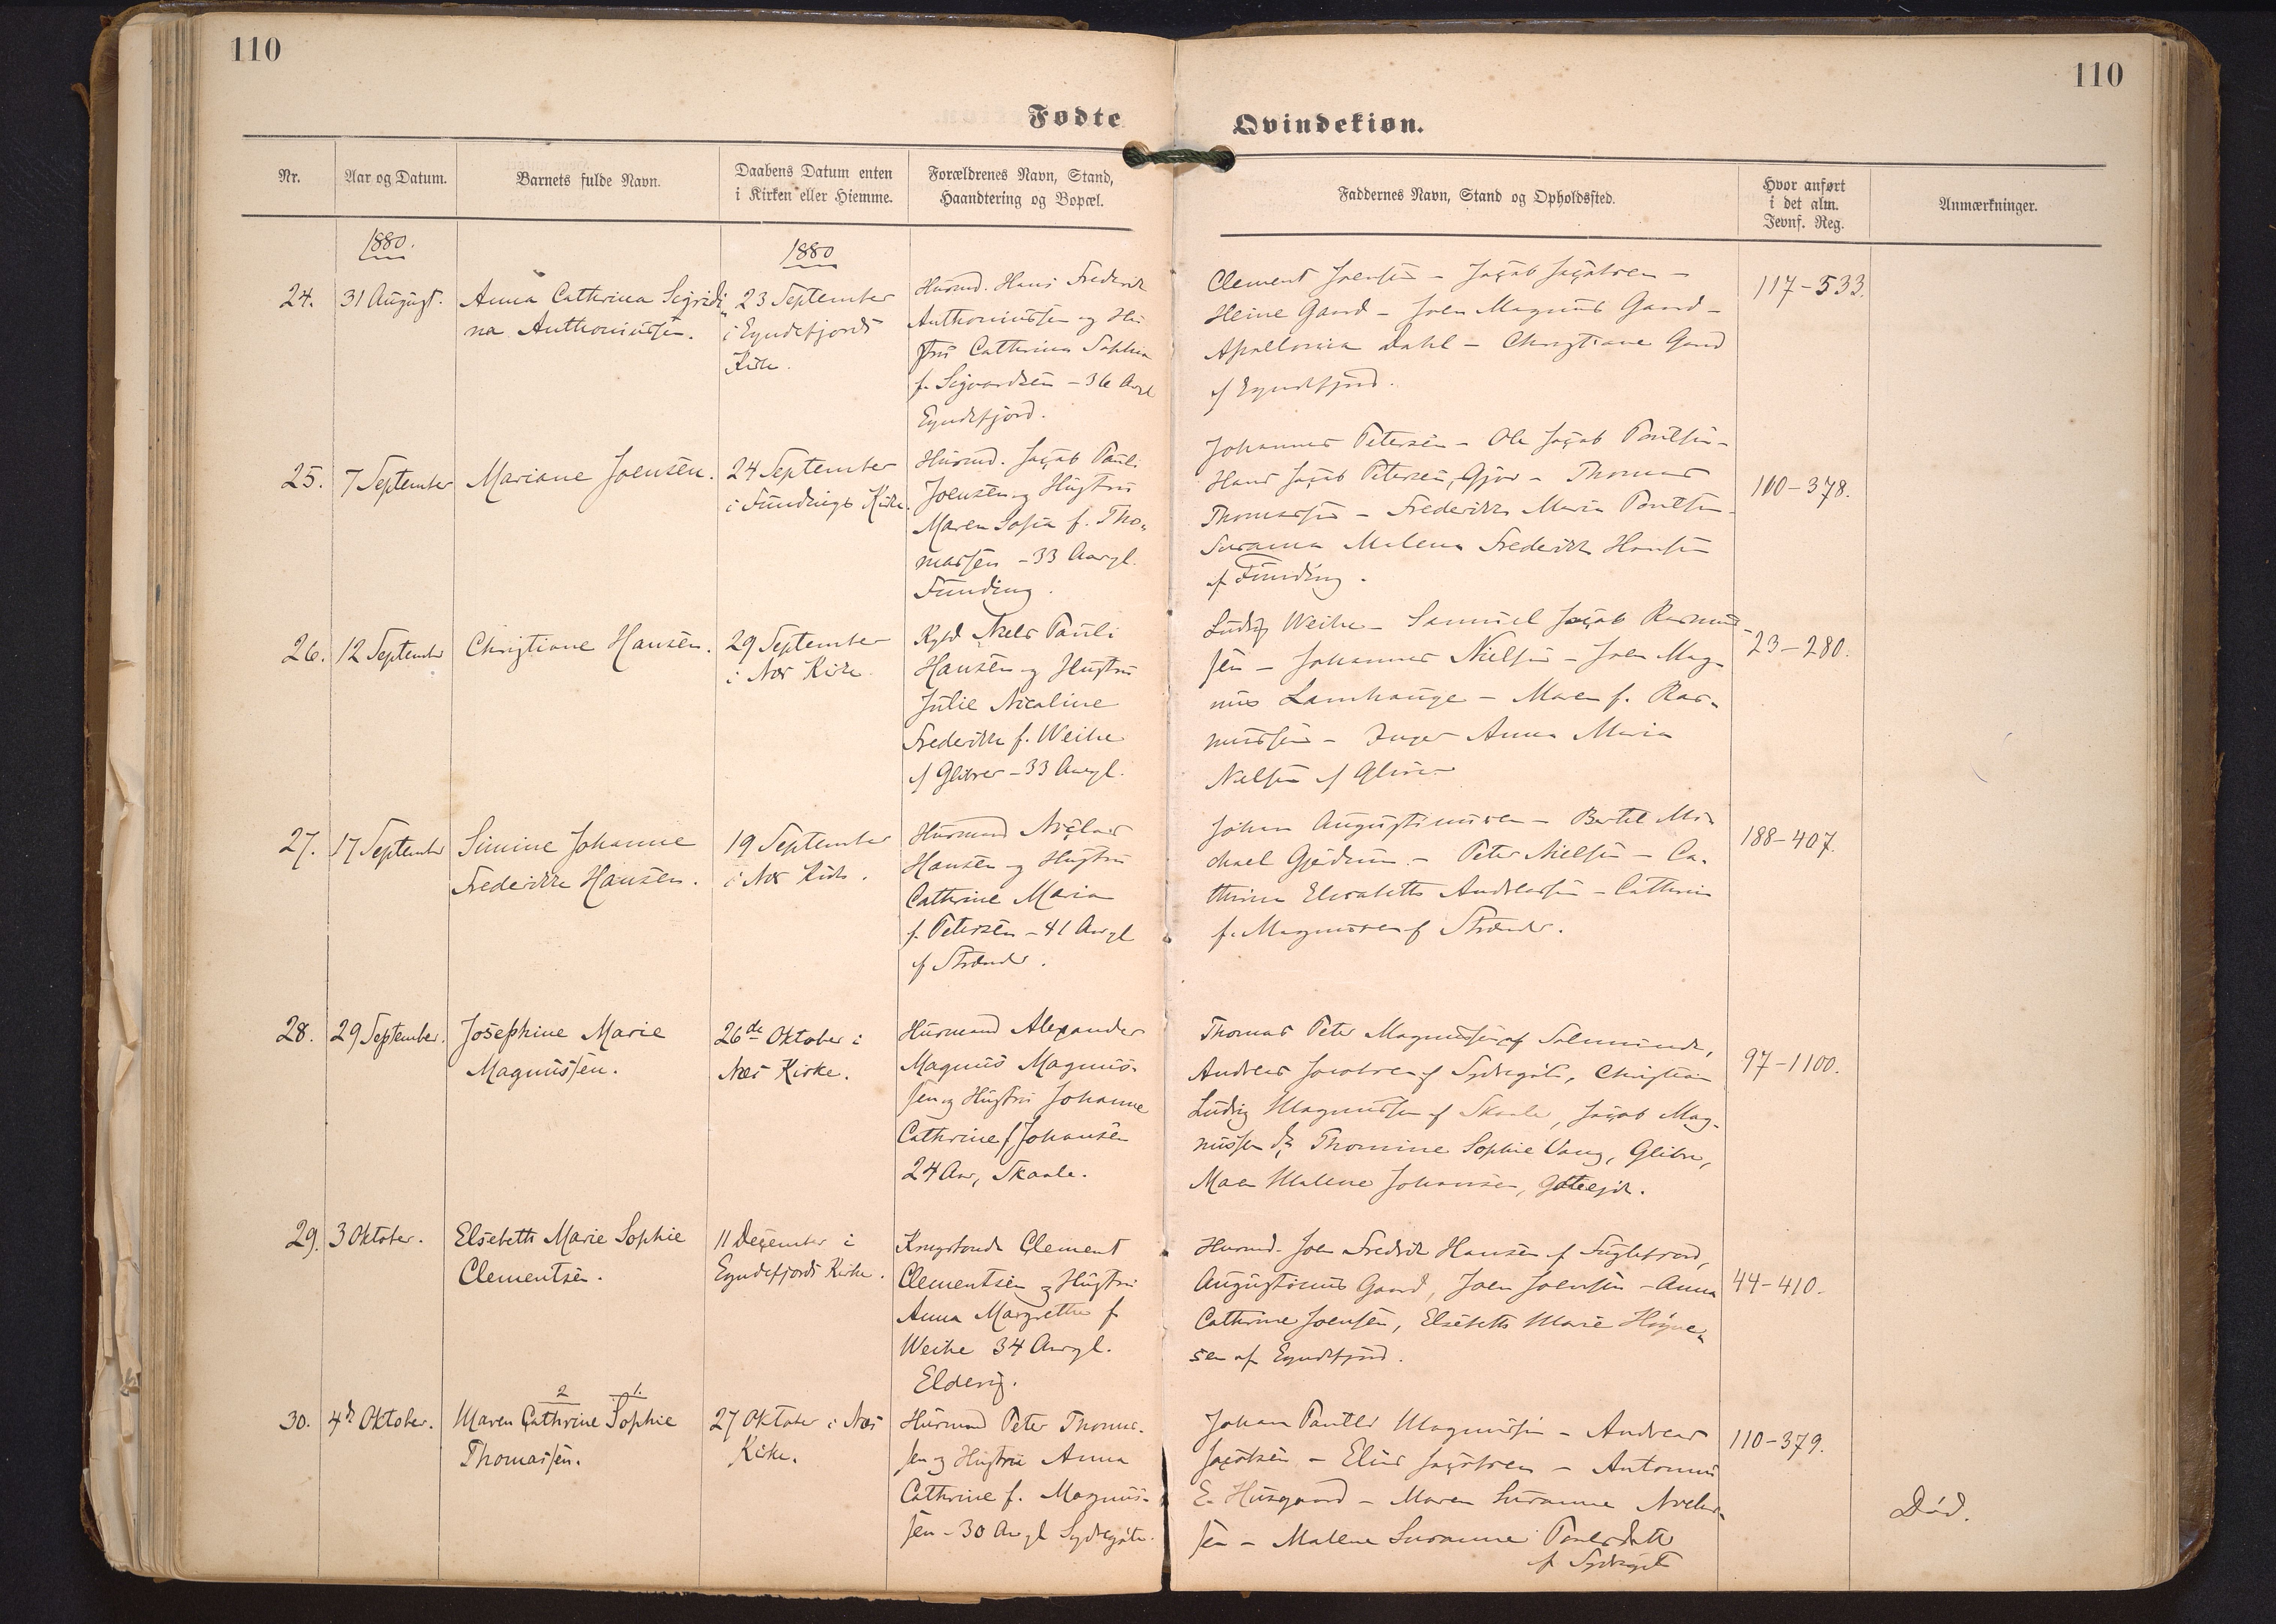 110
110
Fødte
Qvindekiøn.
Nr.
Aar og Datum.
Barnets fulde Navn.
Daabens Datum enten
i Kirken eller Hiemme.
Forældrenes Navn, Stand,
Haandtering og Bopæl.
Faddernes Navn, Stand og Opholdssted.
Hvor anført
i det alm.
Jevnf. Reg.
Anmærkninger.
1880.
1880
24.
31 August.
Anna Cathrina Sigridi
na Anthoniussen.
23 September
i Eyndefjords
Kirke.
Husmd. Hans Frederik
Anthoniussen og Hu
stru Cathrina Sophia
f. Sigvardsen - 36 Aargl
Eyndefjord.
Clement Joensen - Jacob Jacobsen -
Heine Gaard - Joen Magnus Gaard -
Apollonia Dahl - Christiane Gaard
af Eyndefjord.
117-533.
25.
7 September
Mariane Joensen.
24 September
i Fundings Kirke.
Husmd. Jacob Pauli
Joensen og Hustru
Maren Sofia f. Tho-
massen - 33 Aargl.
Funding.
Johannes Petersen - Ole Jacob Poulsen -
Hans Jacob Petersen, Gjov - Thomas
Thomassen - Frederikke Maria Poulsen -
Susanna Malena Frederikke Hansen
af Funding.
110-378.
26.
12 September
Christiane Hansen.
29 September
i Næs Kirke
Niels Pauli
Hansen og Hustru
Julie Nicoline
Frederikke f. Weihe
af Glibrer - 33 Aargl.
Ludvig Weihe - Samuel Jacob Rasmus-
sen - Johannes Nielsen - Joen Mag-
nus Lamhauge - Maren f. Ras-
mussen - Inger Anna Maria
Nielsen af Glibrer
23-280.
27.
17 September
Simine Johanne
Frederikke Hansen.
19 September
i Næs Kirke.
Husmand Niclas
Hansen og Hustru
Cathrine Maria
f. Petersen - 41 Aargl
af Strænder.
Johan Augustinussen - Bertel Mi-
chael Gjedrum - Peter Nielsen - Ca-
thrina Elisabeth Andreassen - Cathrine
f. Magnussen af Strænder.
188-407.
28.
29 September.
Josephine Marie
Magnussen.
26de Oktober i
Næs Kirke.
Husmand Alexander
Magnus Magnus-
sen og Hustru Johanne
Cathrine f. Johansen
24 Aar, Skaale.
Thomas Peter Magnussen af Solmunde,
Andreas Jacobsen af Sydregøte, Christian
Ludvig Magnussen af Skaale, Jacob Mag-
nussen Thomine Sophie Vang, Glibre,
Maren Malene Johansen,
97-1100.
29.
3 Oktober.
Elsebeth Marie Sophie
Clementsen.
11 December i
Eyndefjords Kirke.
Kongsbonde Clement
Clementsen og Hustru
Anna Margrethe f
Weihe 34 Aargl.
Eldevig.
Husmd. Joen Fredrik Hansen af Fuglefjord,
Augustinus Gaard, Joen Joensen - Anna
Cathrine Joensen, Elsebeth Marie Høgne-
sen af Eyndefjord.
44-410.
30.
4de Oktober.
2 1.
Maren Cathrine Sophie
Thomassen.
27 Oktober i Næs
Kirke.
Husmand Peter Thomas-
sen og Hustru Anna
Cathrine f. Magnus-
sen - 30 Aargl Sydregøte.
Johan Poul Magnussen - Andreas
Jacobsen - Elias Jacobsen - Antonius
E. Husgaard - Maren Susanne
sen - Malene Susanne Poulsdatter
af Sydregøte
110-379.
Død.